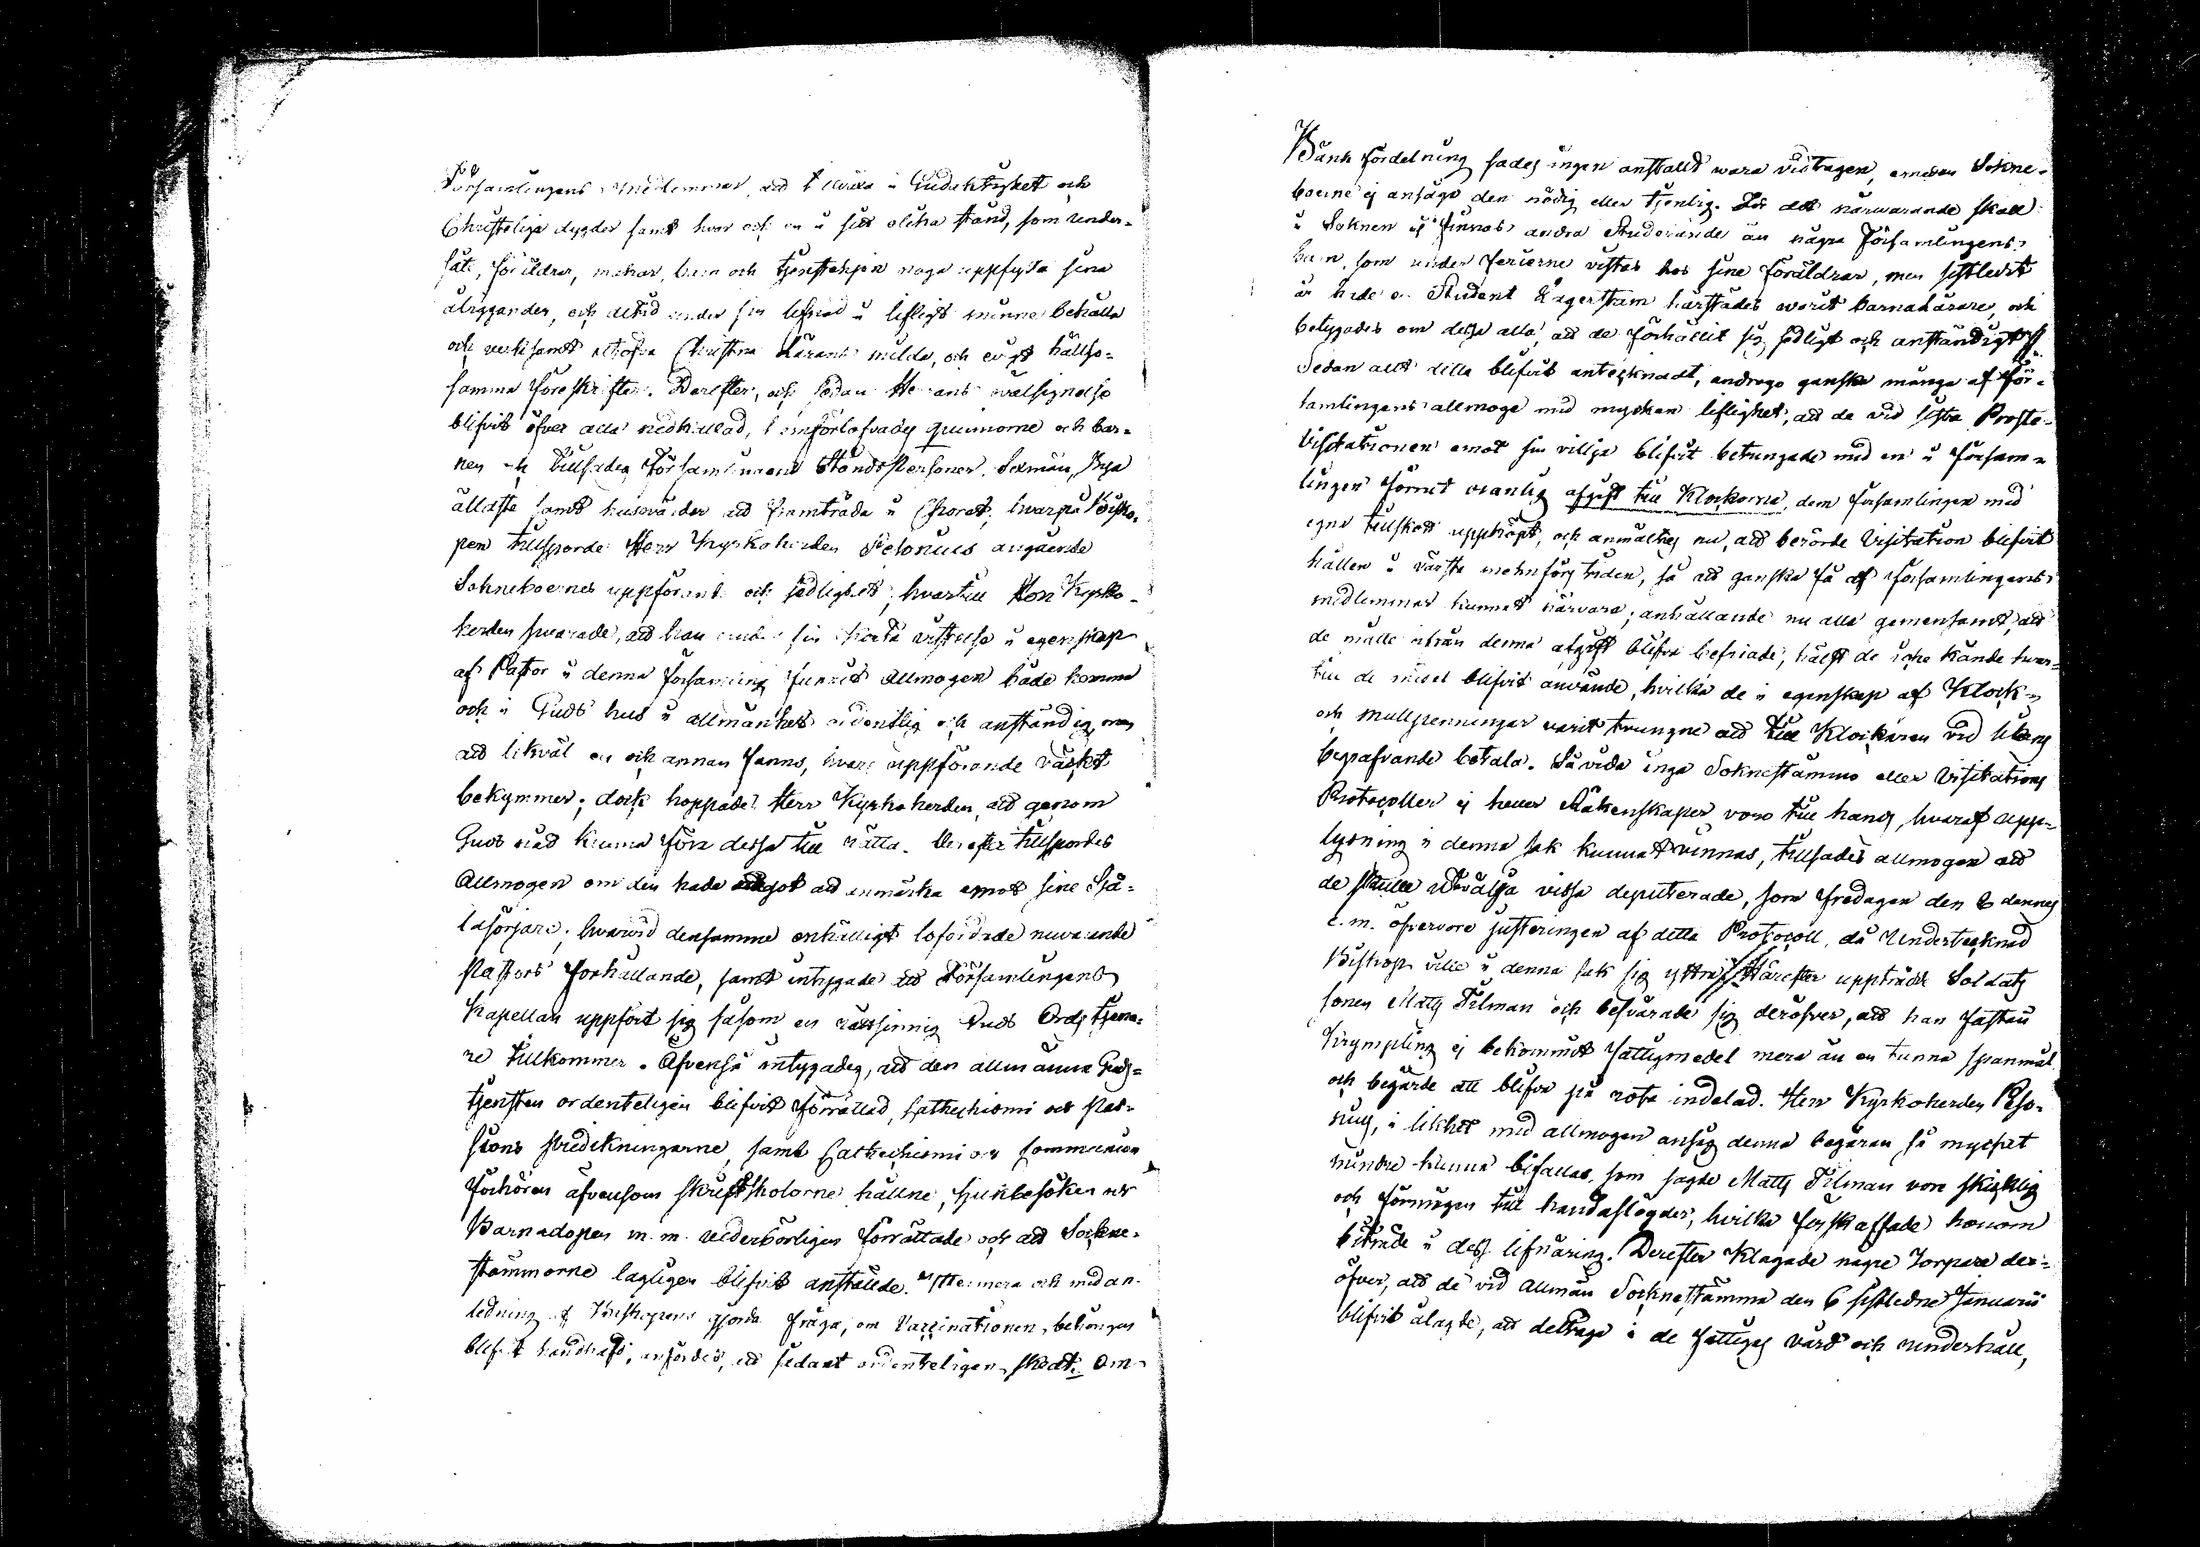 Församlingens medlemmar, att tillväxa i Gudaktighet och
Christeliga dygder samt hvar och en i sitt olika stånd, som under-
såte, föräldrar, makar, barn och tjenstehjon noga uppfylla sina
åligganden, och altid under sin lefnad i lifligt minne behålla
och verksamt utöfva Christna Lärans milda, och evigt hällso-
samma föreskrifter. Derefter, och sedan Herrans välsignelse
blifvit öfver alla nedkallad, hemförlofvades quinnorne och bar-
nen och tillsades Församlingens Ståndspersoner, Sexmän, Bya
älldste samt husbönder att framträda i Choret, hvarpå Bisko-
pen tillsporde Herr Kyrkoherden Pesonius angående
Sokneboernes uppförande och sedlighet, hvartill Herr Kyrko-
herden svarade, att han under sin korta vistelse i egenskap
af Pastor i denna församling funnit Allmogen både hemma
och i Guds hus i allmänhet ordentlig och anständig, men
att likväl en och annan fanns, hvars uppförande väckt
bekymmer; dock hoppades Herr Kyrkoherden, att genom
Guds nåd kunna föra dessa till rätta. Derefter tillspordes
Allmogen om den hade något att anmärka emot sine Sjä-
lasörjare, hvarvid densamme enhälligt lofordade nuvarande
Pastors förhållande, samt intygade att Församlingens
Kapellan uppfört sig såsom en rättsinnig Guds Ords tjena-
re tillkommer. Äfvenså intygades, att den allmänna Guds-
tjensten ordenteligen blifvit förrättad, Cathechismi och Pas-
sions predikningarne, samt Cathechismi och Communion
förhören äfvensom skriftskolorne hållne, sjukbesöken och
Barnadopen m. m. vederbörligen förrättade och att Sockne-
stämmorne lagligen blifvit anstäldte. Yttermera och med an-
ledning af Biskopens gjorda fråga, om Vaccinationen behörigen
blifvit handhafd, anfördes, att sådant ordenteligen skedt. Om
Bänk fördelning sades ingen anstallt wara vidtagen, emedan Sokne-
boerne ej ansågo den nödig eller tjenlig. För det närwarande skall
i Soknen ej finnas andra Studerande än några Församlingens
barn, som under ferierne vistas hos sine föräldrar, men sistledit
år hade en Student Lagerstam härstädes warit barnalärare, och
betygades om dessa alla, att de förhållit sig sedligt och anständigt
Sedan allt detta blifvit antecknadt, androgo ganska många af För-
samlingens allmoge med mycken liflighet, att de vid sista Proste-
Visitationen emot sin villja blifvit betungade med en i Försam-
lingen förrut ovanlig afgift till Klockorna, dem församlingen med
egna tillskott uppköpt, och anmältes nu, att berörde Visitation blifvit
hållen i värsta menförstiden, så att ganska få af Församlingens
medlemmar kunnat närvara; anhållande nu alla gemensamt, att
de måtte ifrån denna afgift blifva befriade, hälst de icke kände hvar-
till de medel blifvit använde, hvilka de i egenskap af Klock-
och mullpenningar varit tvungne att till Klockaren vid liks
begrafvande betala. Såvida inga Soknestämmo eller Visitations
Protocoller ej heller Räkenskaper voro till hands, hvaraf upp-
lysning i denna sak kunnat vinnas, tillsades allmogen att
de skulle utvälja vissa deputerade, som fredagen den 8 dennes
e. m. öfvervore justeringen af detta Protocoll, då Undertecknad
Biskop ville i denna sak sig yttra. Härefter uppträdde Soldats
sonen Matts Filman och besvärade sig deröfver, att han fastän
Krympling ej bekommit fattigmedel mera än en tunna spanmål
och begärde att blifva på rota indelad. Herr Kyrkoherden Peso-
nius, i likhet med allmogen ansåg denna begäran så mycket
mindre kunna bifallas, som sagde Matts Filman vore skicklig
och förmögen till handaslögder, hvilka förskaffade honom
biträde i dess lifnäring. Derefter klagade några Torpare der-
öfver, att de vid allmän Socknestämma den 6 sistledne Januarii
blifvit ålagde, att deltaga i de fattigas vård och underhåll,